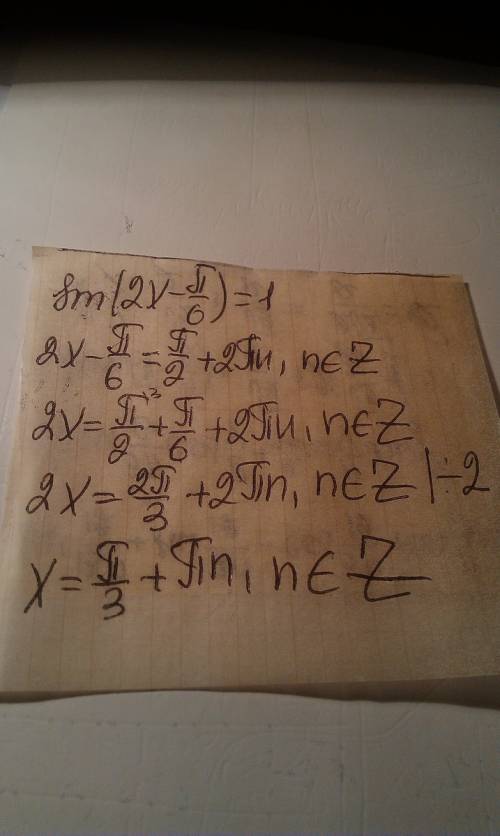 sin(2x-π/6)=1
2x-π/6=π/2+2πn, n∈Z
2x=π/2^{\3}+π/6+2πn, n∈Z
2x=2π/3+2πn, n∈Z |÷2
x=π/3+πn, n∈Z